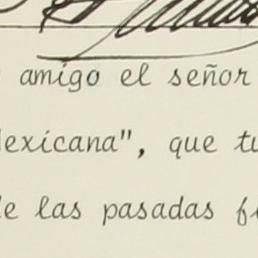 amigo el señor
exicana", que
las pasadas